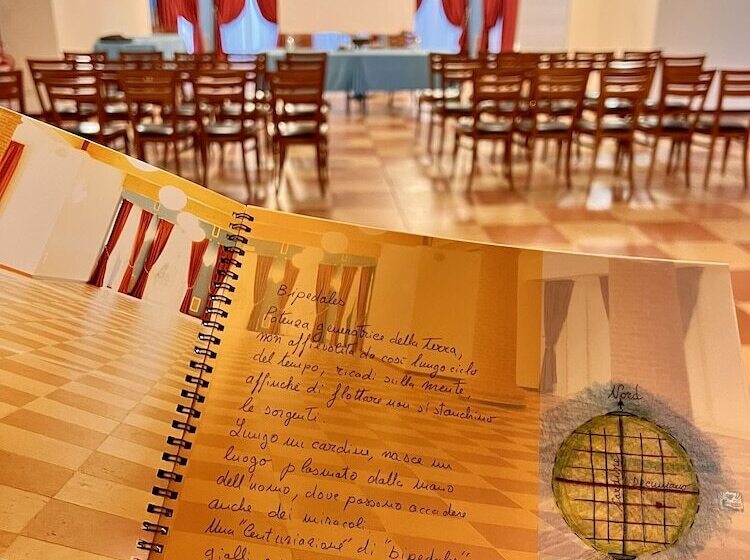 Bipedales
Potenza generatrice della terra,
non affievolita da così lungo ciclo
del tempo, ricadi sulla mente,
affinché di flottare non si stanchino
le sorgenti.
Lungo un cardine, nasce un
luogo plasmato dalla mano
dell'uomo, dove possono accadere
anche dei miracoli.
Una "Centuriazione" di "bipedales"
gialli
Nord
Cardine
Decumano